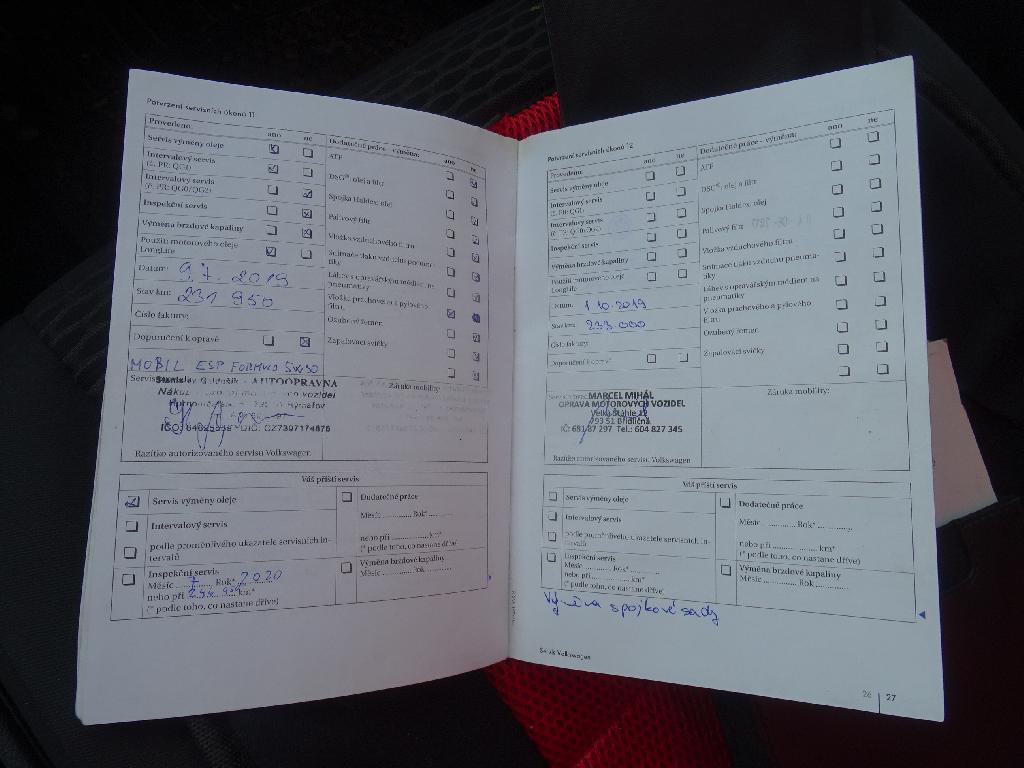 Potvrzení servisních úkonů 11
Provedeno: ano ne
Servis výměny oleje
Intervalový servis
(č. PR: QG1)
Intervalový servis
(č. PR: QG0/QG2)
Inspekční servis
Výměna brzdové kapaliny
Použití motorového oleje
LongLife
Datum: 9.7. 2019
Stav km: 231 950
Číslo faktury:
Doporučení k opravě
MOBIL ESP FORMULA 5W30
Dodatečné práce - výměna: ano ne
ATF
DSG®, olej a filtr
Spojka Haldex, olej
Palivový filtr
Vložka vzduchového filtru
Snímače tlaku vzduchu pneuma-
tiky
Láhev s opravářským médiem na
pneumatiky
Vložka prachového a pylového
filtru
Ozubený řemen
Zapalovací svíčky
- AUTOOPRAVNA
Záruka mobility
Razítko autorizovaného servisu Volkswagen
Váš příští servis
Servis výměny oleje
Intervalový servis
podle proměnlivého ukazatele servisních in-
tervalů
Inspekční servis
Měsíc 7 Rok* 2020
nebo při km*
(* podle toho, co nastane dříve)
Dodatečné práce
Měsíc ............. Rok* ............
nebo při ...................... km*
(* podle toho, co nastane dříve)
Výměna brzdové kapaliny
Měsíc ............. Rok ............
Potvrzení servisních úkonů 12
Provedeno: ano ne
Servis výměny oleje
Intervalový servis
(č. PR: QG1)
Intervalový servis
(č. PR: QG0/QG2)
Inspekční servis
Výměna brzdové kapaliny
Použití motorového oleje
LongLife
Datum: 1.10.2019
Stav km: 233.000
Číslo faktury:
Doporučení k opravě
Dodatečné práce - výměna: ano ne
ATF
DSG®, olej a filtr
Spojka Haldex, olej
Palivový filtr
Vložka vzduchového filtru
Snímače tlaku vzduchu pneuma-
tiky
Láhev s opravářským médiem na
pneumatiky
Vložka prachového a pylového
filtru
Ozubený řemen
Zapalovací svíčky
MARCEL MIHÁL
OPRAVA MOTOROVÝCH VOZIDEL
Velká Štáhle
793 51 Břidličná
IČ: 681 87 297 Tel.: 604 827 345
Záruka mobility:
Razítko autorizovaného servisu Volkswagen
Váš příští servis
Servis výměny oleje
Intervalový servis
podle proměnlivého ukazatele servisních in-
tervalů
Inspekční servis
Měsíc ............. Rok* ............
nebo při ...................... km*
(* podle toho, co nastane dříve)
Dodatečné práce
Měsíc ............. Rok* ............
nebo při ...................... km*
(* podle toho, co nastane dříve)
Výměna brzdové kapaliny
Měsíc ............. Rok ............
Výměna spojkové sady
Servis Volkswagen
26 27